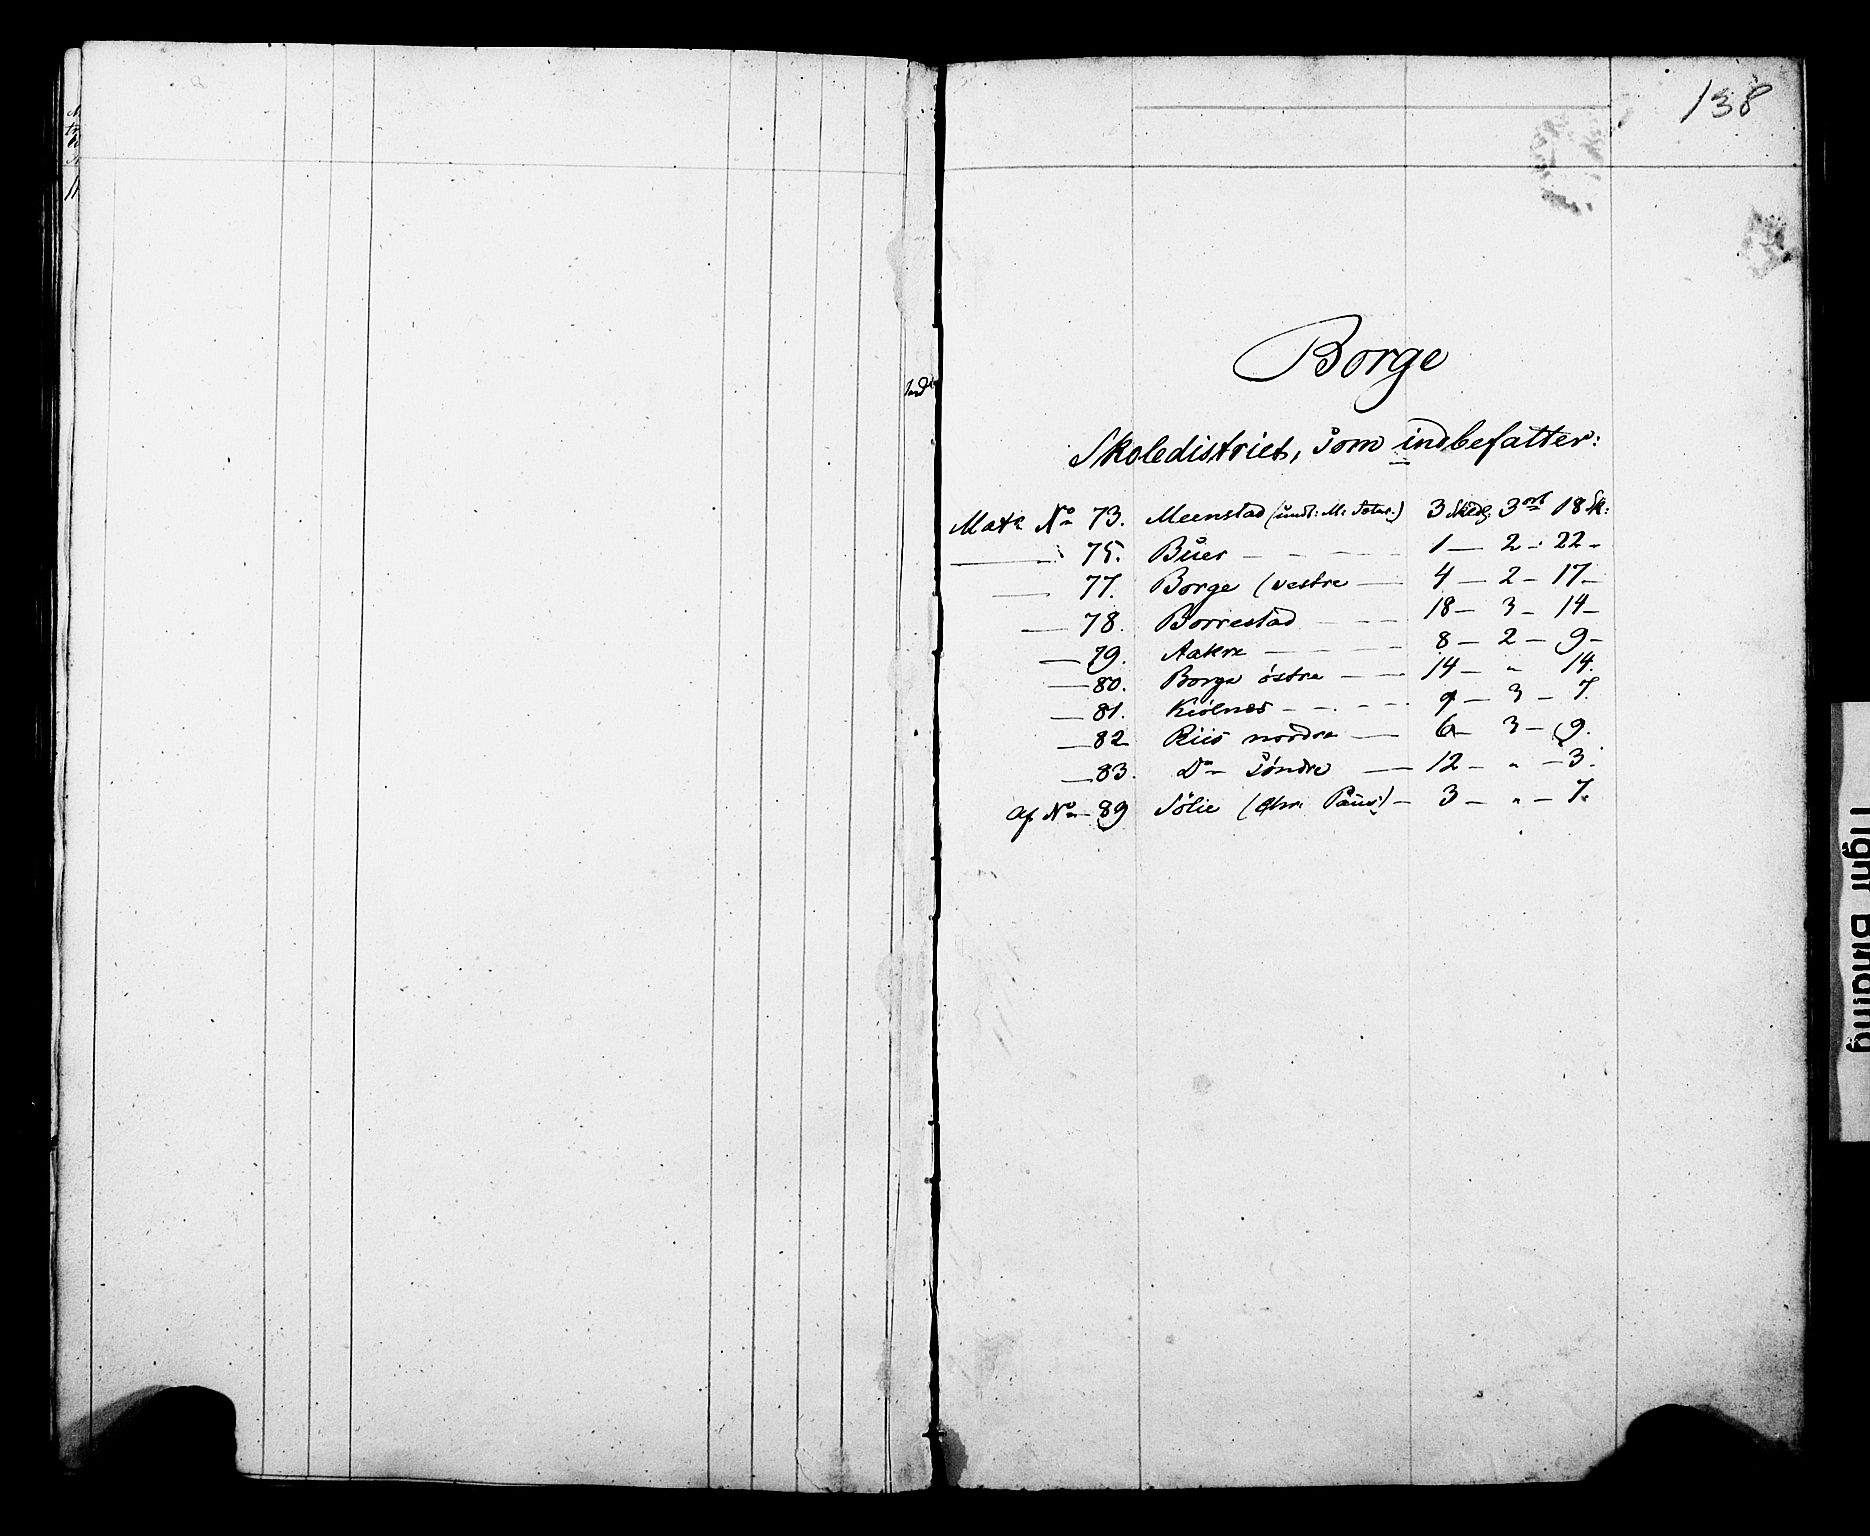 138
Borge
Skoledistrict, som indbefatter:
Matr No 73. Meenstad (undt: M: ) 3 Skdlr 3 ort 18 sk:
— 75. Buer — 1 — 2 - 22 -
— 77. Borge (vestre — 4 — 2 — 17 —
— 78. Borrestad — 18 — 3 — 14 —
— 79. Aakre — 8 — 2 — 9 —
— 80. Borge østre — 14 — " 14.
— 81. Kiølnes — 9 — 3 — 7.
— 82 Riis nordre — 6 — 3 — 9.
— 83. Do søndre — 12 — " — 3.
Af No 89 Sølie (Chr: Paus:) — 3 — " — 7.
Tight Binding